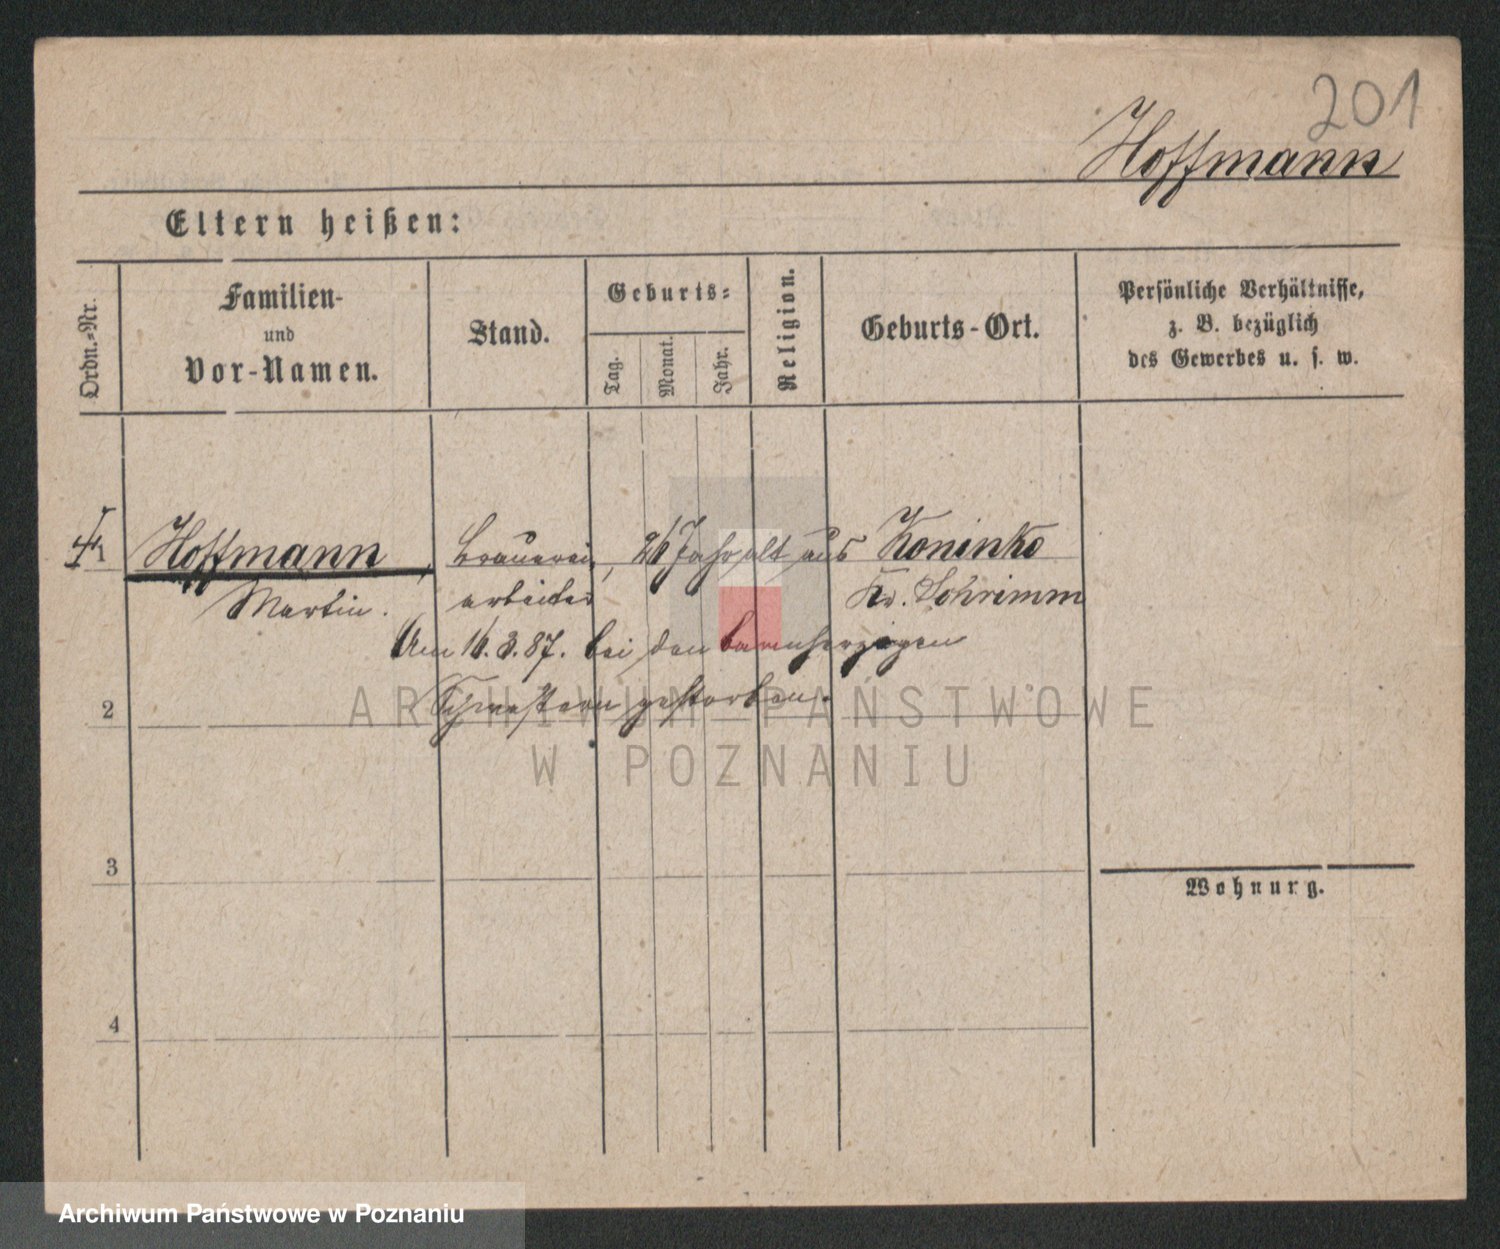 201
Hoffmann
Eltern heißen:
Ordn.-Nr.
Familien-
und
Vor-Namen.
Stand.
Geburts-
Tag.
Monat.
Jahr.
Religion.
Geburts-Ort.
Persönliche Verhältnisse,
z. B. bezüglich
des Gewerbes u. s. w.
1 Hoffmann, Brauerei, 26 Jahr alt aus Koninko
Martin. arbeiter Kr. Schrimm
Am 16. 3. 87. bei den barmherzigen
Schwestern gestorben.
2
ARCHIWUM PAŃSTWOWE
W POZNANIU
3
Wohnung.
4
Archiwum Państwowe w Poznaniu